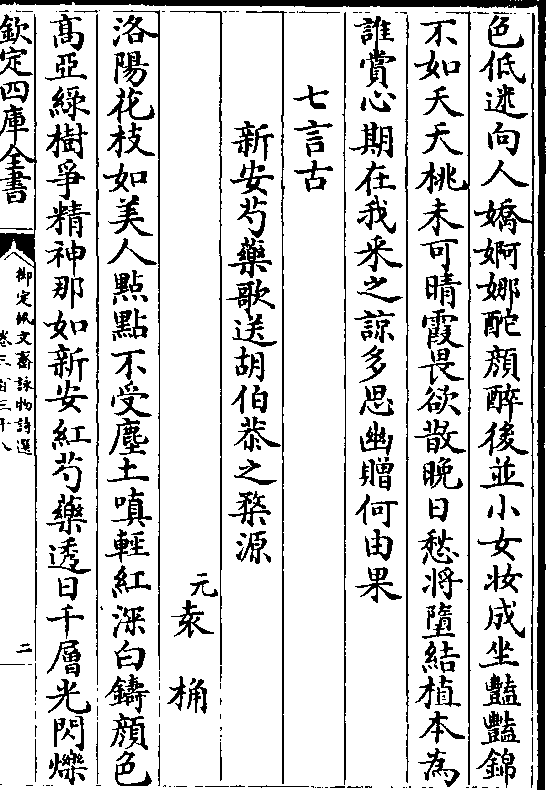 色低迷向人嬌婀娜酡顔醉後並小女妝成坐豔豔錦
不如夭夭桃未可晴霞畏欲散晚日愁將墮結植本為
誰賞心期在我采之諒多思幽贈何由果
七言古
新安芍藥歌送胡伯恭之婺源
元袁桷
洛陽花枝如美人點點不受塵土嗔輕紅深白鑄顔色
高亞綠樹爭精神那如新安紅芍藥透日千層光閃爍
欽定四庫全書
御定佩文齋詠物詩選
卷三百三十八
二